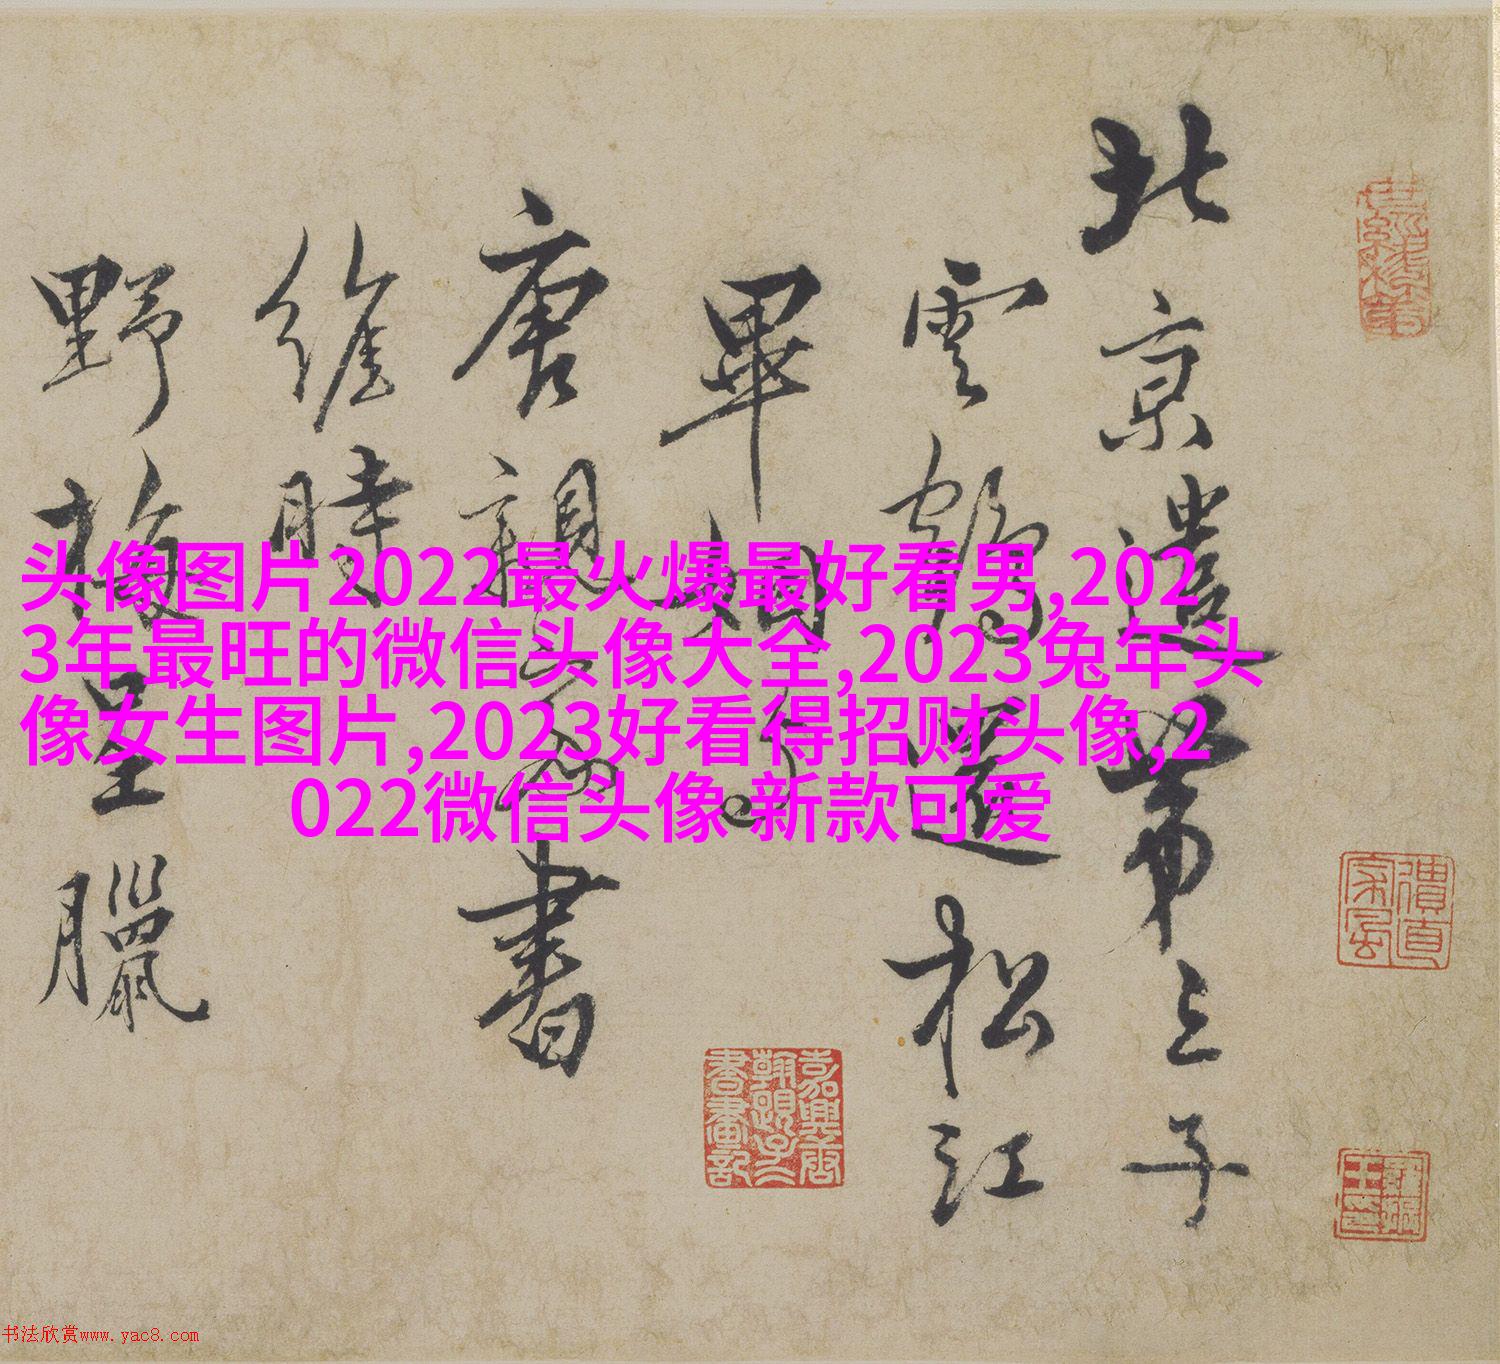 北京遣第三子
雲鶴還松江
畢姻事
唐親家書
維時
野梅呈臘
头像图片2022最火爆最好看男,202
3年最旺的微信头像大全,2023兔年头
像女生图片,2023好看得招财头像,2
022微信头像 新款可爱
嘉興唐翰題子二書畫記
书法欣赏www.yac8.com